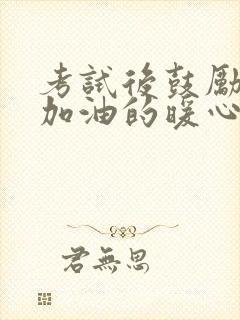 考試後鼓勵
加油的暖心
君無思